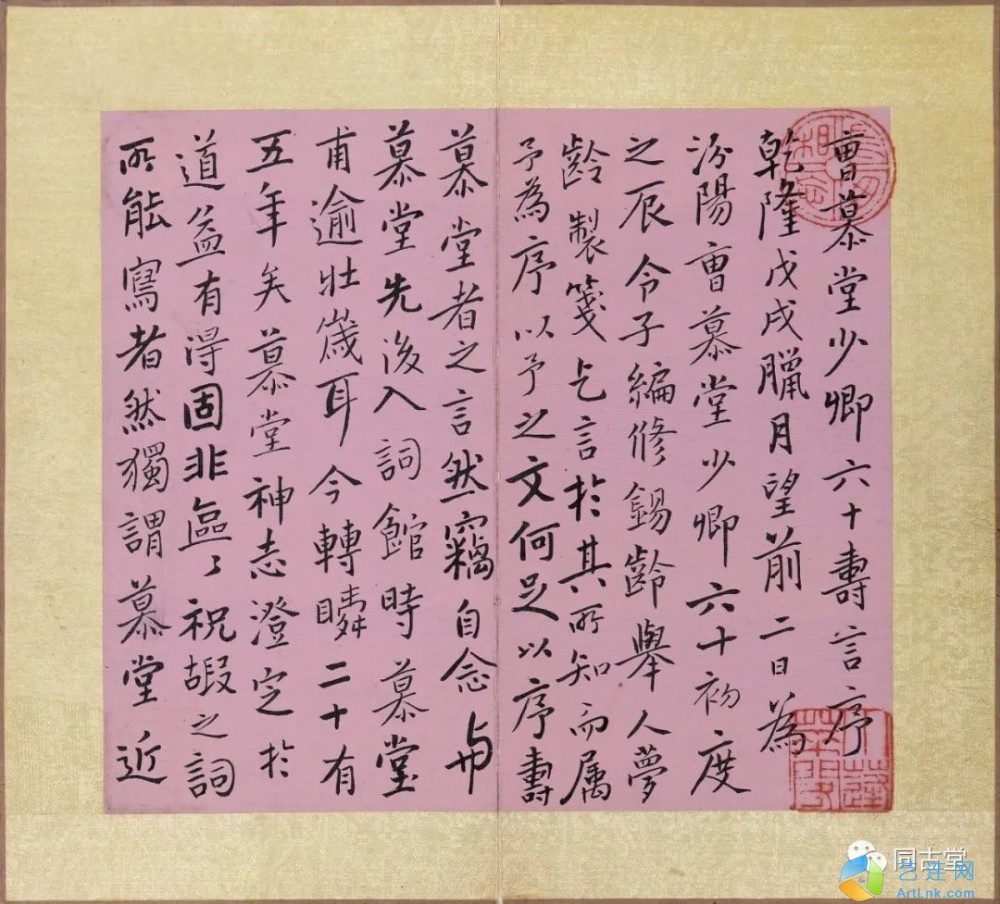 曹慕堂少卿六十壽言序
乾隆戊戌臘月望前二日為
汾陽曹慕堂少卿六十初度
之辰令子編修錫齡舉人夢
齡製箋乞言於其所知而属
予為序以予之文何足以序壽
慕堂者之言然竊自念与
慕堂先後入詞館時慕堂
甫逾壯歲耳今轉瞬二十有
五年矣慕堂神志澄定於
道益有得固非區〻祝嘏之詞
所能寫者然獨謂慕堂近
同古堂
艺连网
ArtLnk.com